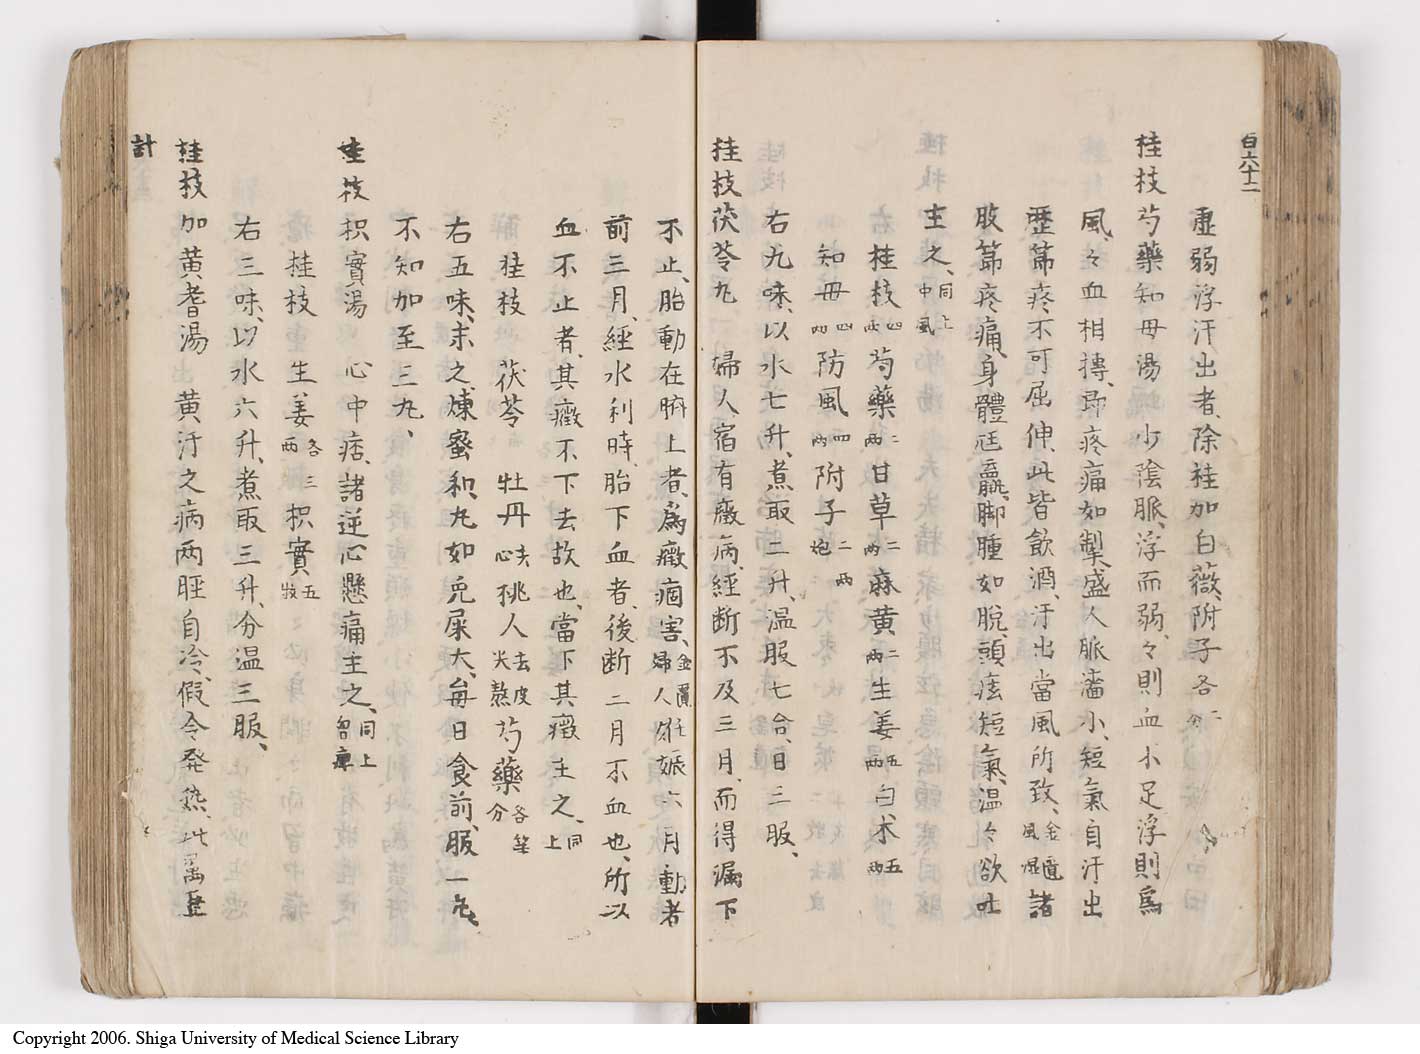 百六十二
虚弱浮汗出者、除桂加白薇、附子各
桂枝芍藥知母湯 少陰脈、浮而弱、々則血不足浮則爲
風、々血相摶、即疼痛如掣盛人脈濇小、短氣自汗出
歷節疼不可屈伸、此皆飲酒、汗出當風所致、金匱風湿諸
肢節疼痛、身體尫羸、脚腫如脱頭眩短氣、温々欲吐
主之、同上中風
桂枝四两芍藥二两甘草二两麻黄二两生姜五两白术五两
知母四两防風四两附子二两炮
右九味、以水七升、煮取二升、温服七合、日三服、
桂技茯苓丸 婦人、宿有癥病、經断不及三月、而得漏下
不止、胎動在臍上者、爲癥痼害、金匱婦人妊娠六月動者
前三月、經水利時、胎下血者、後断二月不血也、所以
血不止者、其癥不下去故也、當下其癥主之、同上
桂枝 茯苓 牡丹去心桃人去皮尖熬芍藥各等分
右五味、末之煉蜜和、丸如兎屎大、毎日食前、服一丸、
不知加至三丸、
桂枝枳實湯 心中痞、諸逆心懸痛主之、同上胸痺
桂枝 生姜各三两枳實五枚
右三味、以水六升、煮取三升、分温三服、
桂枝加黄耆湯 黄汗之病两脛自冷、假令発熱、此属歷
計
Copyright 2006. Shiga University of Medical Science Library